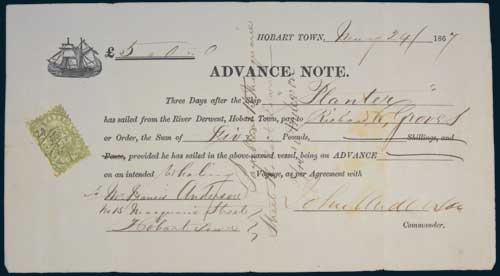 HOBART TOWN, May 24 1867
£ 5 " 0 " 0
ADVANCE NOTE.
Three Days after the Ship "Planter"
has sailed from the River Derwent, Hobart Town, pay to Richard Groves
or Order, the Sum of Five Pounds, Shillings, and
Pence, provided he has sailed in the above-named vessel, being an ADVANCE
on an intended Whaling Voyage, as per Agreement with
To Mr Francis Anderson
No 15 Macquarie Street
Hobart Town
Commander.